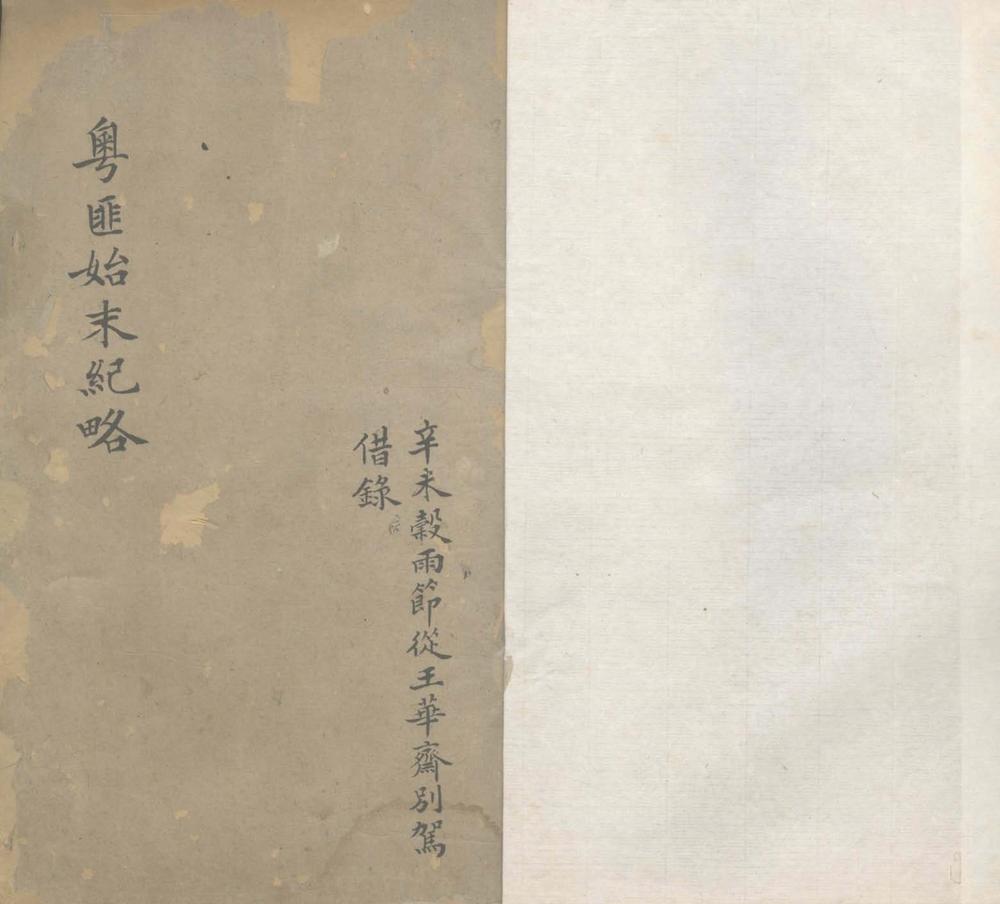 辛未穀雨節從王華齋別駕
借錄
粵匪始末紀略